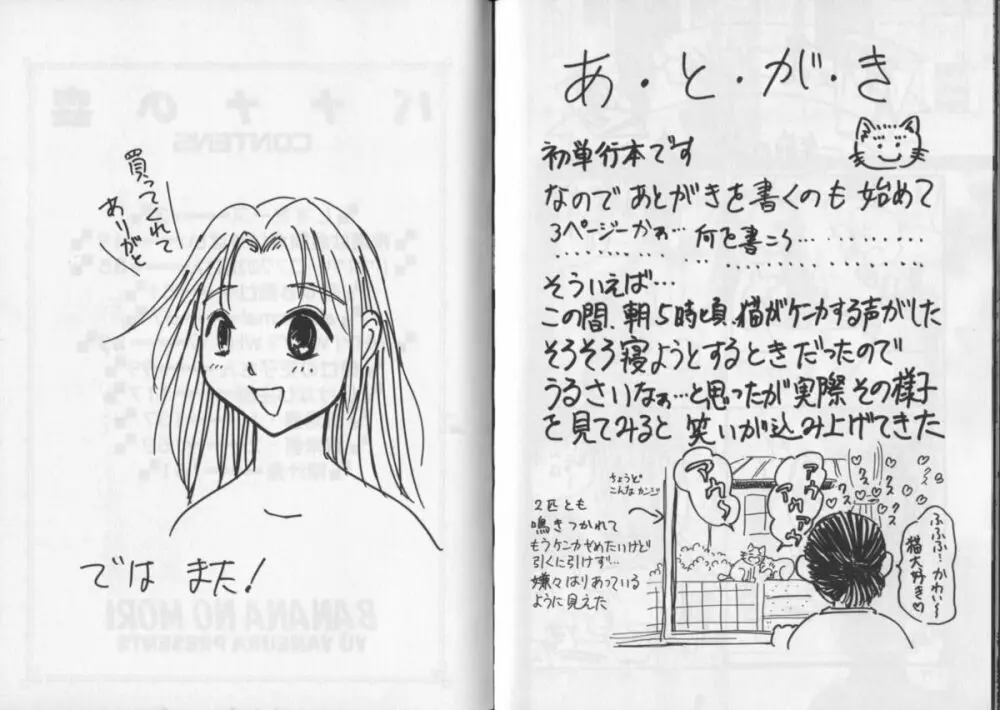 あ・と・が・き
初単行本です
なので あとがきを書くのも 始めて
3ページーかぁ… 何を書こう…
そういえば…
この間、朝5時頃、猫がケンカする声がした
そろそろ寝ようとするときだったので
うるさいなぁ…と思ったが実際その様子
を見てみると 笑いが込み上げてきた
ちょうど
こんなカンジ
2匹とも
鳴きつかれて
もうケンカやめたいけど
引くに引けず…
嫌々はりあっている
ように見えた
アウ〜
アウ
アウアウ〜
クス
クス
クス
クス
ふふふ…かわい〜
猫大好き♡
買ってくれて
ありがと
では また!
CONTENS
BANANA NO MORI
YU YANEURA PRESENTS